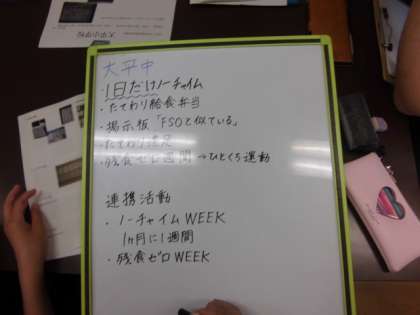 大平中
・1日だけノーチャイム
・たてわり給食弁当
・掲示板「FSOと似ている」
・たてわり遠足
・残食ゼロ週間→ひとくち運動
連携活動
・ノーチャイムWEEK
1ヶ月に1週間
・残食ゼロWEEK